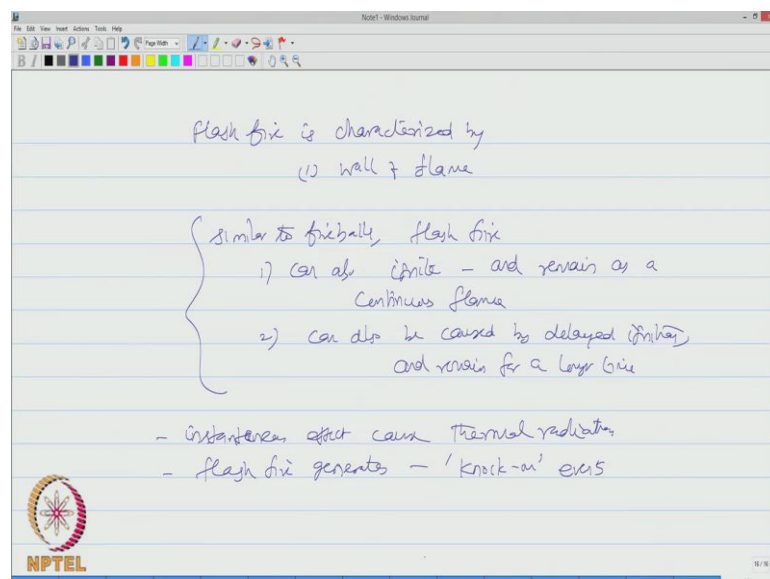 Note1 - Windows Journal
File Edit View Insert Actions Tools Help
Page Width
B I
flash fire is characterized by
(1) wall of flame
similar to fireballs, flash fire
1) can also ignite - and remain as a
continuous flame
2) can also be caused by delayed ignition,
and remain for a longer time
- instantaneous effect cause thermal radiation
- flash fire generates - 'knock-on' events
NPTEL
16 / 16